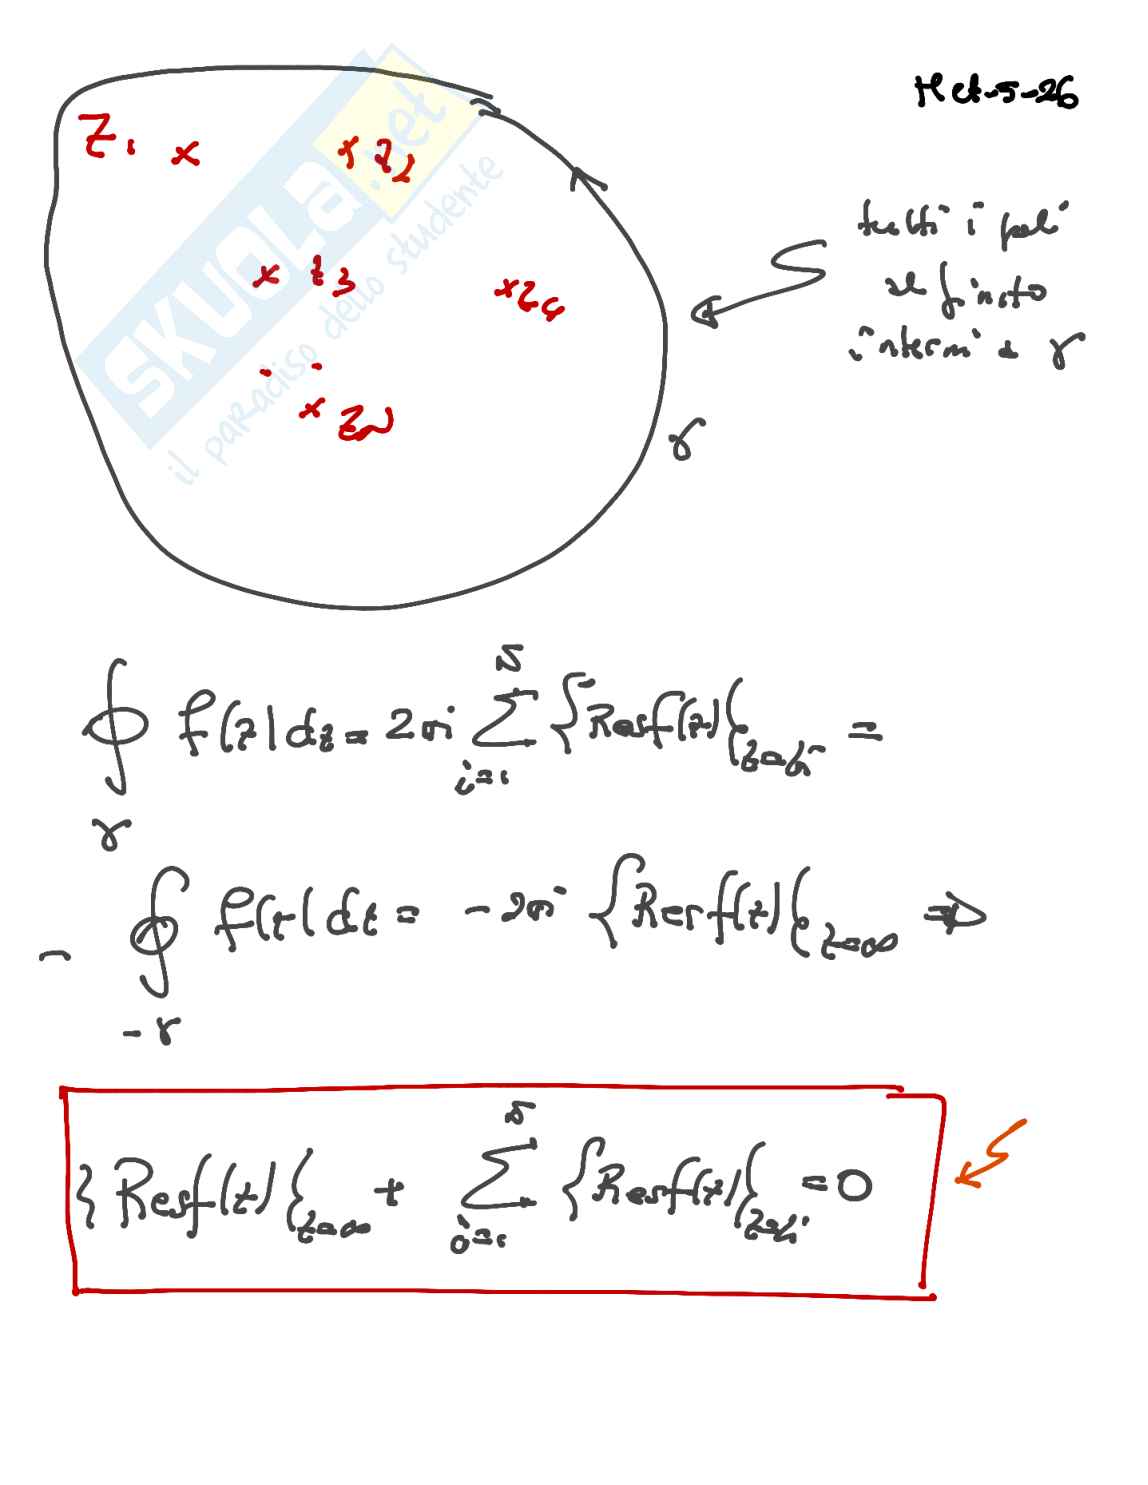 Met-5-26
z₁ × × z₂
× z₃
× z₄
× z_N
tutti i poli
al finito
interni a γ
γ
SKUOLA.net
il paradiso dello studente
∮_γ f(z) dz = 2πi ∑_{i=1}^{N} {Res f(z)}_{z=z_i} =
- ∮_{-γ} f(z) dz = -2πi {Res f(z)}_{z=∞} ⇒
{Res f(z)}_{z=∞} + ∑_{i=1}^{N} {Res f(z)}_{z=z_i} = 0